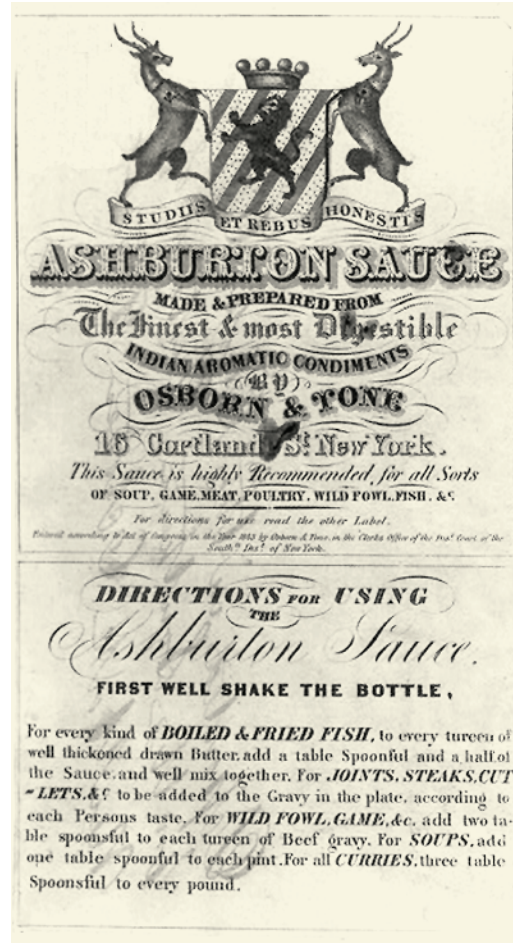 STUDIIS ET REBUS HONESTIS
ASHBURTON SAUCE
MADE & PREPARED FROM
The Finest & most Digestible
INDIAN AROMATIC CONDIMENTS
(BY)
OSBORN & TONE
16 Cortland St. New York.
This Sauce is highly Recommended, for all Sorts
OF SOUP, GAME, MEAT, POULTRY, WILD FOWL, FISH, &c.
For directions for use read the other Label.
Entered according to Act of Congress in the Year 1843 by Osborn & Tone, in the Clerks Office of the Dist. Court of the
Southn. Dist. of New York.
DIRECTIONS FOR USING
THE
Ashburton Sauce.
FIRST WELL SHAKE THE BOTTLE,
For every kind of BOILED & FRIED FISH, to every tureen of
well thickened drawn Butter, add a table Spoonful and a half of
the Sauce, and well mix together. For JOINTS, STEAKS, CUT
=LETS, &c to be added to the Gravy in the plate, according to
each Persons taste. For WILD FOWL, GAME, &c. add two ta-
ble spoonsful to each tureen of Beef gravy. For SOUPS, add
one table spoonful to each pint. For all CURRIES, three table
Spoonsful to every pound.